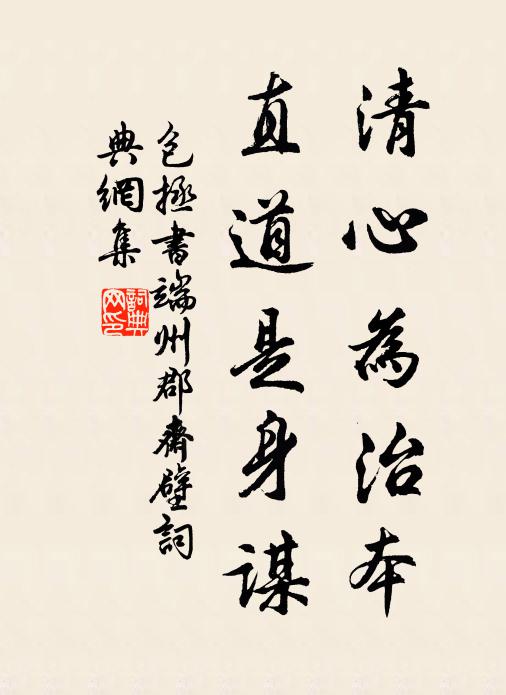 清心為治本
直道是身謀
包拯書端州郡齋壁詞
典網集
詞典網印